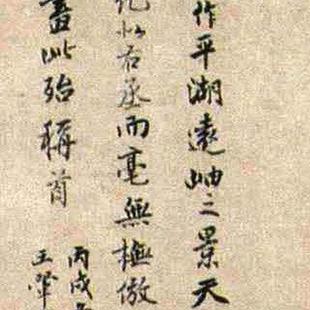 作平湖遠岫之景天
似右丞而毫無摹倣
畫此殆稱首
丙戌
王翚